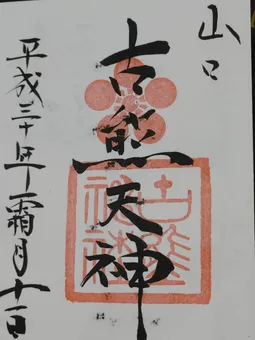 山口
古熊天神
平成三十年霜月十一日
古熊
神社